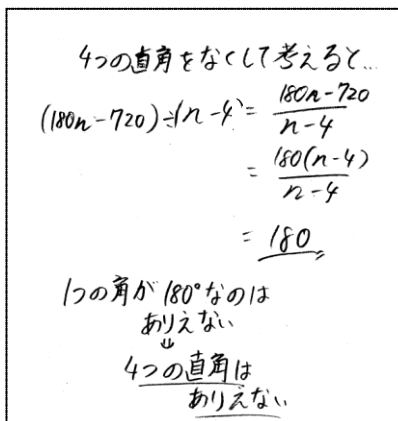 4つの直角をなくして考えると…
(180n-720)÷(n-4) = 180n-720/n-4
= 180(n-4)/n-4
= 180
1つの角が180°なのは
ありえない
⇓
4つの直角は
ありえない